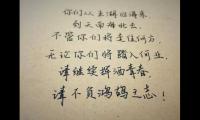 你们从五湖四海来
到天南海北去
不管你们将走往何方
无论你们将踏入何业
请继续挥洒青春
请不负鸿鹄之志!